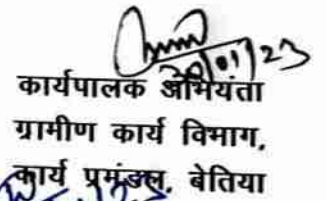 30/01/23
कार्यपालक अभियंता
ग्रामीण कार्य विभाग,
कार्य प्रमंडल, बेतिया